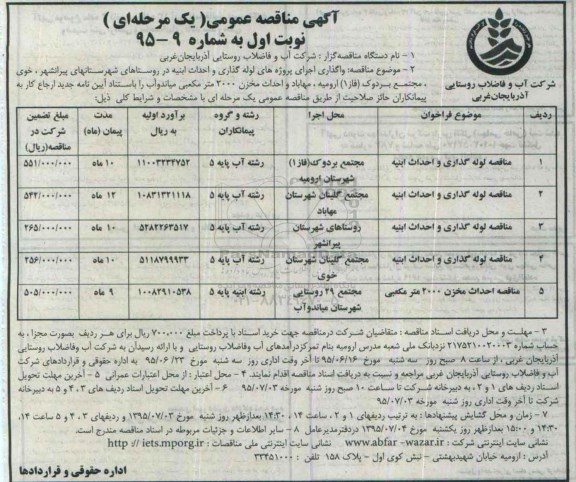 آگهی مناقصه عمومی( یک مرحله‌ای )
نوبت اول به شماره ۹ -۹۵
شرکت آب و فاضلاب روستایی
آذربایجان‌غربی
۱ - نام دستگاه مناقصه‌گزار : شرکت آب و فاضلاب روستایی آذربایجان‌غربی
۲ - موضوع مناقصه: واگذاری اجرای پروژه های لوله گذاری و احداث ابنیه در روستاهای شهرستانهای پیرانشهر ، خوی
، مجتمع بردوک (فاز۱) ارومیه ، مهاباد و احداث مخزن ۲۰۰۰ متر مکعبی میاندوآب را باستناد آیین نامه جدید ارجاع کار به
پیمانکاران حائز صلاحیت از طریق مناقصه عمومی یک مرحله ای با مشخصات و شرایط کلی ذیل:
ردیف موضوع فراخوان محل اجرا رشته و گروه پیمانکاران برآورد اولیه به ریال مدت پیمان (ماه) مبلغ تضمین شرکت در مناقصه(ریال)
۱ مناقصه لوله گذاری و احداث ابنیه مجتمع بردوک(فاز۱) شهرستان ارومیه رشته آب پایه ۵ ۱۱۰۰۳۲۳۴۷۵۲ ۱۰ ماه ۵۵۱/۰۰۰/۰۰۰
۲ مناقصه لوله گذاری و احداث ابنیه مجتمع گلینان شهرستان مهاباد رشته آب پایه ۵ ۱۰۸۳۱۳۲۱۱۱۸ ۱۲ ماه ۵۴۲/۰۰۰/۰۰۰
۳ مناقصه لوله گذاری و احداث ابنیه روستاهای شهرستان پیرانشهر رشته آب پایه ۵ ۵۲۸۲۲۶۳۵۱۷ ۱۰ ماه ۲۶۵/۰۰۰/۰۰۰
۴ مناقصه لوله گذاری و احداث ابنیه مجتمع گلینان شهرستان خوی رشته آب پایه ۵ ۵۱۱۸۷۹۹۹۳۳ ۱۰ ماه ۲۵۶/۰۰۰/۰۰۰
۵ مناقصه احداث مخزن ۲۰۰۰ متر مکعبی مجتمع ۲۹ روستایی شهرستان میاندوآب رشته ابنیه پایه ۵ ۱۰۰۸۲۹۱۰۵۳۸ ۹ ماه ۵۰۵/۰۰۰/۰۰۰
۳ - مهلت و محل دریافت اسناد مناقصه : متقاضیان شرکت درمناقصه جهت خرید اسناد با پرداخت مبلغ ۷۰۰،۰۰۰ ریال برای هر ردیف بصورت مجزا ، به
حساب شماره ۲۱۷۵۲۱۱۰۰۲۰۰۳ نزدبانک ملی شعبه مدرس ارومیه بنام تمرکزدرآمدهای آب وفاضلاب روستایی و با ارائه رسیدان به شرکت آب وفاضلاب روستایی
آذربایجان غربی ، از ساعت ۸ صبح روز سه شنبه مورخ ۹۵/۰۶/۱۶ تا آخر وقت اداری روز سه شنبه مورخ ۹۵/۰۶/۲۳ به اداره حقوقی و قراردادهای شرکت
آب و فاضلاب روستایی آذربایجان غربی مراجعه و نسبت به دریافت اسناد مناقصه اقدام نمایند. ۴ - محل اعتبار : از محل اعتبارات عمرانی ۵ - آخرین مهلت تحویل
اسناد ردیف های ۱ و ۲ ، به دبیرخانه شرکت تا ساعت ۱۰ صبح روز شنبه مورخه ۹۵/۰۷/۰۳ ۶ - آخرین مهلت تحویل اسناد ردیف های ۳، ۴ و ۵ به دبیرخانه
شرکت تا آخر وقت اداری روز شنبه مورخه ۹۵/۰۷/۰۳
۷ - زمان و محل گشایش پیشنهادها : به ترتیب ردیفهای ۱ و ۲ ، ساعت ۱۴ ، ۱۴:۳۰ بعدازظهر روز شنبه مورخ ۱۳۹۵/۰۷/۰۳ و ردیفهای ۳، ۴ و ۵ ساعت ۱۴،
۱۴:۳۰ و ۱۵:۰۰ بعدازظهر روز یکشنبه مورخ ۱۳۹۵/۰۷/۰۴ دردفترمدیرعامل ۸ - سایر اطلاعات و جزئیات مربوطه در اسناد مناقصه مندرج است.
نشانی سایت اینترنتی شرکت : www.abfar -wazar.ir نشانی سایت اینترنتی ملی مناقصات : http :// iets.mporg.ir
آدرس : ارومیه خیابان شهیدبهشتی - نبش کوی اول - پلاک ۱۵۸ تلفن : ۳۳۴۵۱۰۰۰
اداره حقوقی و قراردادها